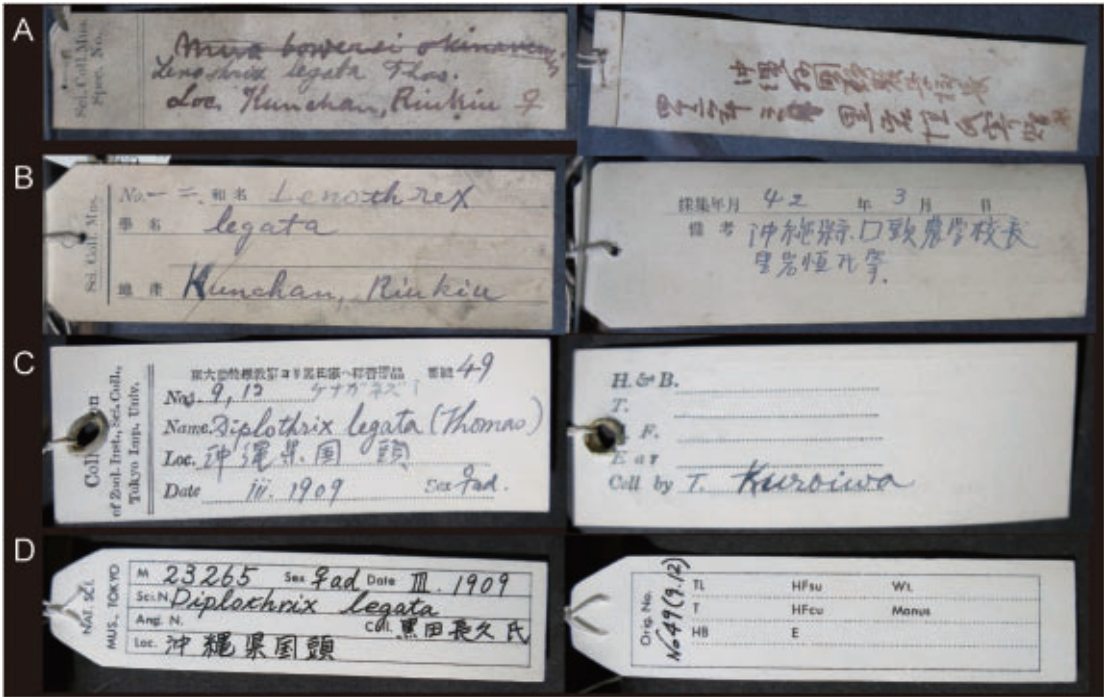 A
Sci. Coll. Mus.
Spec. No.
Mus bowersi okinavensis
Lenothrix legata Thos.
Loc. Kunchan, Riukiu ♀
四二年三月 黒岩恒氏寄贈
B
Sci. Coll. Mus.
No. 一二. 和名 Lenothrex
學名 legata
Kunchan, Riukiu
採集年月 42 年 3 月 日
備考 沖縄縣口頭農学校長
黒岩恒氏寄
C
Collection
of Zool. Inst., Sci. Coll.,
Tokyo Imp. Univ.
番號 49
No. 9, 12 ケナガネズミ
Name. Diplothrix legata (Thomas)
Loc. 沖縄県国頭
Date iii. 1909 Sex ♀ad.
H. & B.
T.
H F.
Ear
Coll by T. Kuroiwa
D
NAT. SCI.
MUS., TOKYO
M 23265 Sex ♀ad Date III. 1909
Sci. N. Diplothrix legata
Ang. N. Coll. 黒田長久氏
Loc. 沖縄県国頭
Orig. No.
No49(9.12)
TL HFsu Wt.
T HFcu Manus
HB E